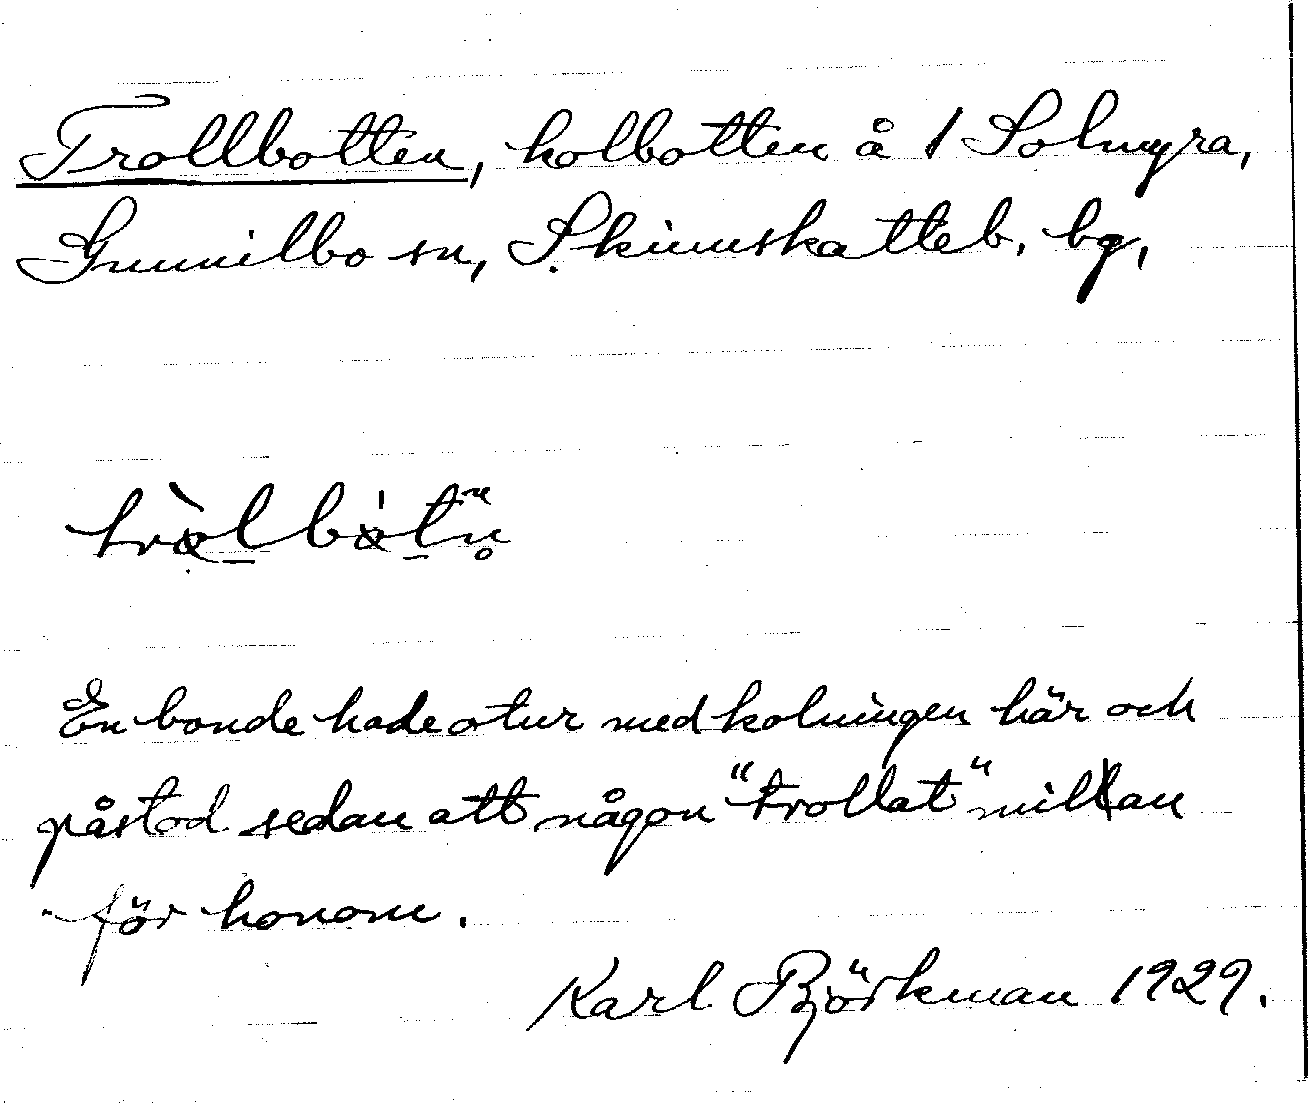 Trollbotten, kolbotten å 1 Solmyra,
Gunnilbo sn, Skinnskatteb. bg,
En bonde hade otur med kolningen här och
påstod sedan att någon "trollat" millan
för honom.
Karl Björkman 1929.